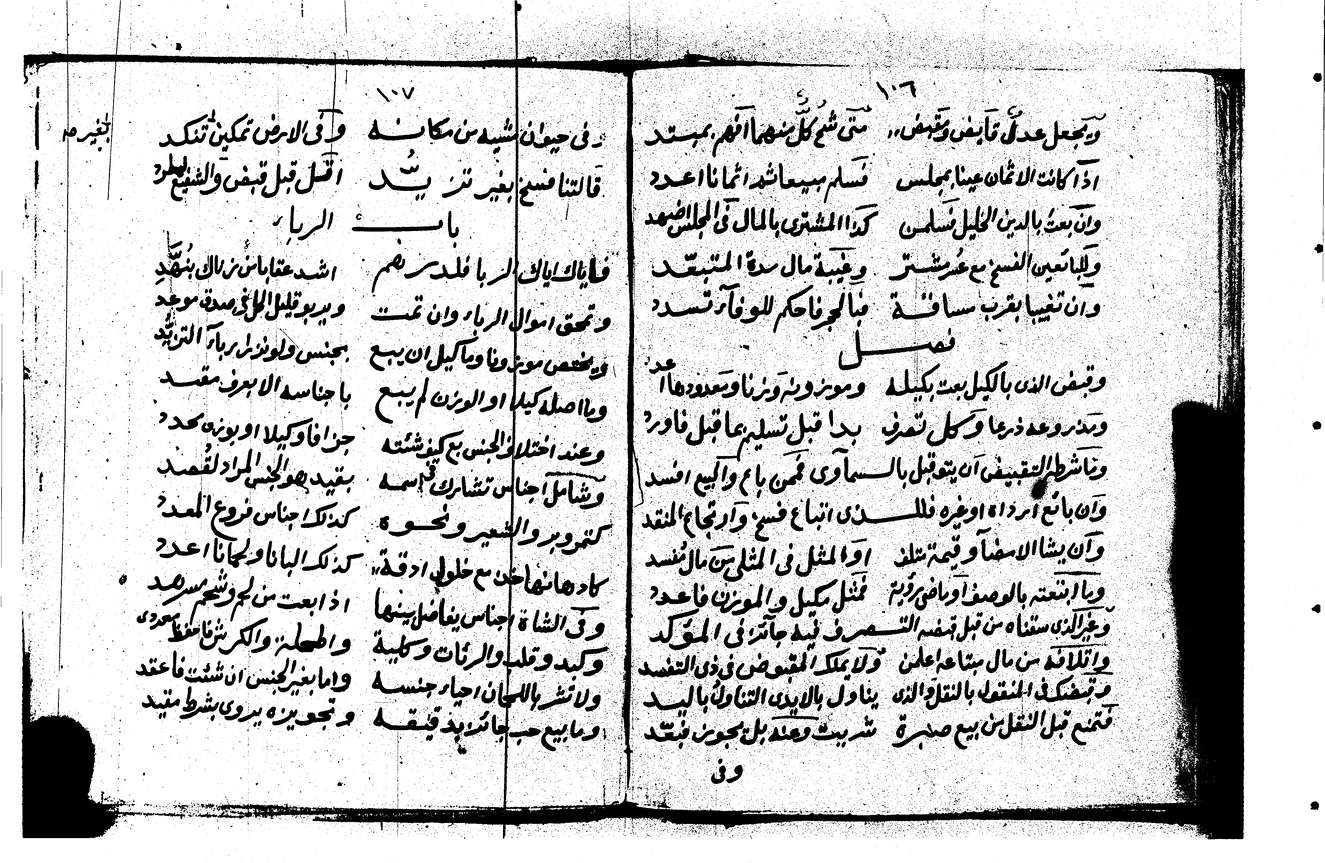 ١٠٦
ويجعل عدل قابض ومقبض متى شح كل منهما افهم بمبتد
اذا كانت الاثمان عينا بمجلس فسلم مبيعا ثم اثمانا اعدد
وان بعت بالدين الخليل فسلمن كذا المشترى بالمال فى المجلس اضهد
وللبائعين الفسخ مع عسر مشتر وغيبة مال مدة المتبعد
وان تغيبا بقرب مسافة فبالحجر فاحكم للوفاء تسدد
فصل
وقبض الذى بالكيل بعت بكيله وموزونه وزنا ومعدودها عد
ومذروعه ذرعا وكل تصرف بدا قبل تسليم بما قبل فاورد
وما شرطه التقبيض ان يتو قبل بالسماوى فمن باع والبيع افسد
وان بائع ارداه او غيره فللذى ابتاع فسخ وارتجاع المنقد
وان يشا الامضا وقيمة متلف او المثل فى المثلى من مال مفسد
وما ابتعته بالوصف او ماضى رؤية فمثل مكيل والموزن فاعدد
وغير الذى سقناه من قبل قبضه التصرف فيه جائز فى المؤكد
واتلافه من مال مبتاعه اعلمن ولا يملك المقبوض فى ذى التفسد
وقبضك فى المنقول بالنقل والذى يناول بالايدى التناول باليد
فتمنع قبل النقل من بيع صبرة شريت وعنه بل يجوز فبعد
وفى
١٠٧
وفى حيوان مشيه من مكانه وفى الارض تمكين
قالتنا فسخ بغير تزيد اقل قبل قبض والشفيع
بغير صح
باب الرباء
فاياك اياك الربا فلدرهم اشد عقابا من زناك بنهد
وتمحق اموال الرباء وان نمت ويربو قليل الحل فى صدق موعد
ويختص موزونا وما كيل ان يبع بجنس ولو نزرا رباء التزيد
وما اصله كيلا او الوزن لم يبع باجناسه الا بعرف مقيد
وعند اختلاف الجنس بع كيف شئته جزافا وكيلا او بوزن محدد
وشامل اجناس تشارك فى اسمه بقيد هو الجنس المراد لقصد
كتمر وبر والشعير ونحوه كذلك اجناس فروع المعدد
كادهانها خل مع خلول ادقة كذلك البانا ولحمانا اعدد
وفى الشاة اجناس يفاضل بينها اذا بعت من لحم وشحم مسرهد
وكبد وقلب والرئات وكلية واطحلة والكرش فاحفظ
ولا تشر باللحمان احياء جنسه واما بغير الجنس ان شئت فاعقد
وما بيع حب جائز بدقيقه وتجويزه يروى بشرط مقيد